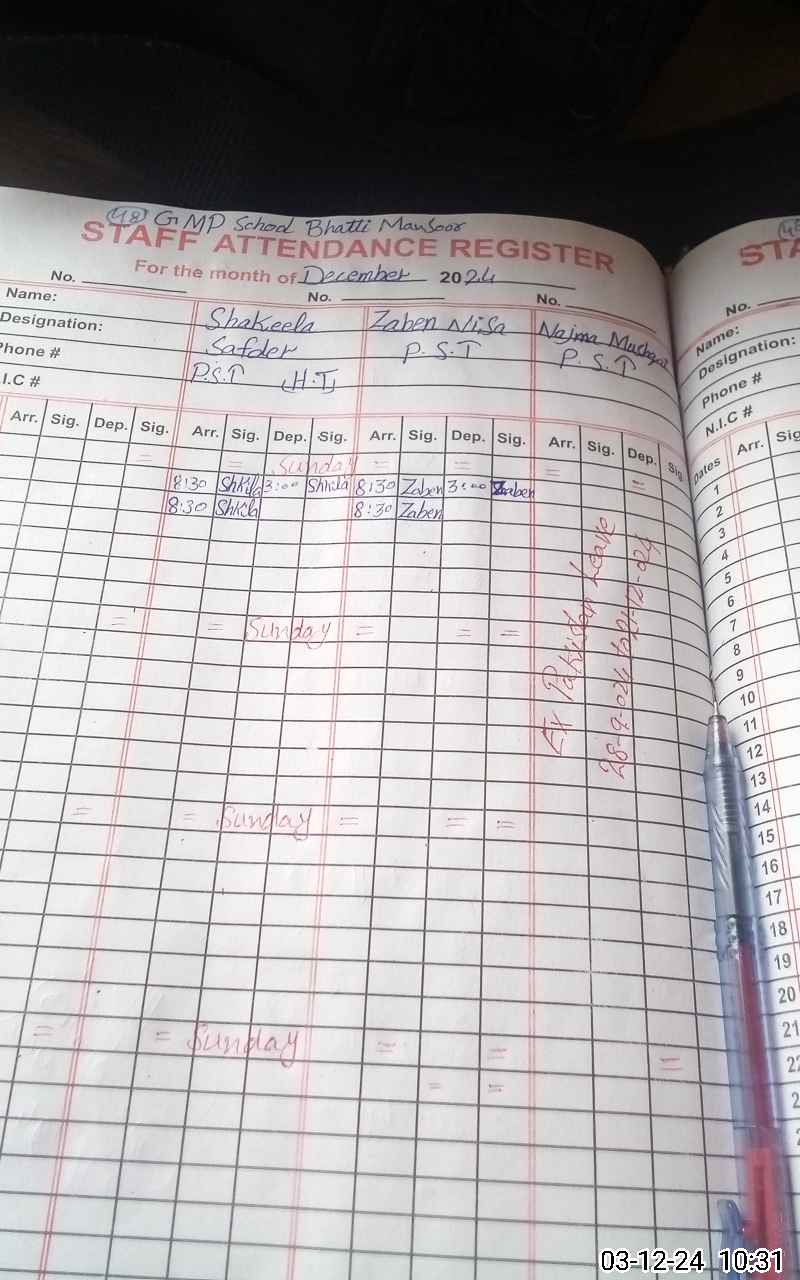 48 GMP School Bhatti Mansoor
STAFF ATTENDANCE REGISTER
For the month of December 2024
No. No. No.
Name: Shakeela Zaben Nisa Najma Mushtaq
Designation: Safder P.S.T P.S.T
Phone # P.S.T (H.T)
I.C #
Arr. Sig. Dep. Sig. Arr. Sig. Dep. Sig. Arr. Sig. Dep. Sig. Arr. Sig. Dep. Sig
= = Sunday = = = =
8:30 Shkila 3:00 Shkila 8:30 Zaben 3:00 Zaben
8:30 Shkila 8:30 Zaben
= = Sunday = = =
Ex Pakistan Leave
= = Sunday = = =
= = Sunday = = =
= =
STA
No.
Name:
Designation:
Phone #
N.I.C #
Dates Arr. Sig
1
2
3
4
5
6
7
8
9
10
11
12
13
14
15
16
17
18
19
20
21
22
03-12-24 10:31